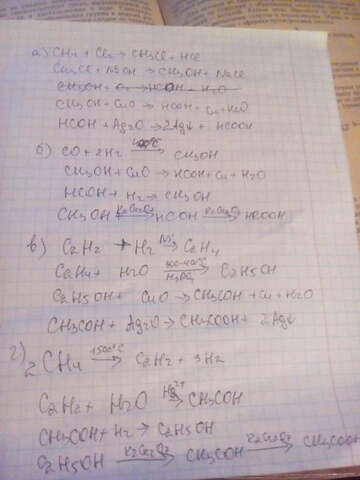 а) CH4 + Cl2 → CH3Cl + HCl
CH3Cl + NaOH → CH3OH + NaCl
CH3OH + CuO → HCOH + Cu + H2O
HCOH + Ag2O → 2Ag↓ + HCOOH
б) CO + 2H2 400°C → CH3OH
CH3OH + CuO → HCOH + Cu + H2O
HCOH + H2 → CH3OH
CH3OH K2Cr2O7 → HCOH K2Cr2O7 → HCOOH
в) C2H2 + H2 Ni → C2H4
C2H4 + H2O H3PO4 → C2H5OH
C2H5OH + CuO → CH3COH + Cu + H2O
CH3COH + Ag2O → CH3COOH + 2Ag↓
г) 2CH4 1500°C → C2H2 + 3H2
C2H2 + H2O Hg2+ → CH3COH
CH3COH + H2 → C2H5OH
C2H5OH K2Cr2O7 → CH3COH K2Cr2O7 → CH3COOH